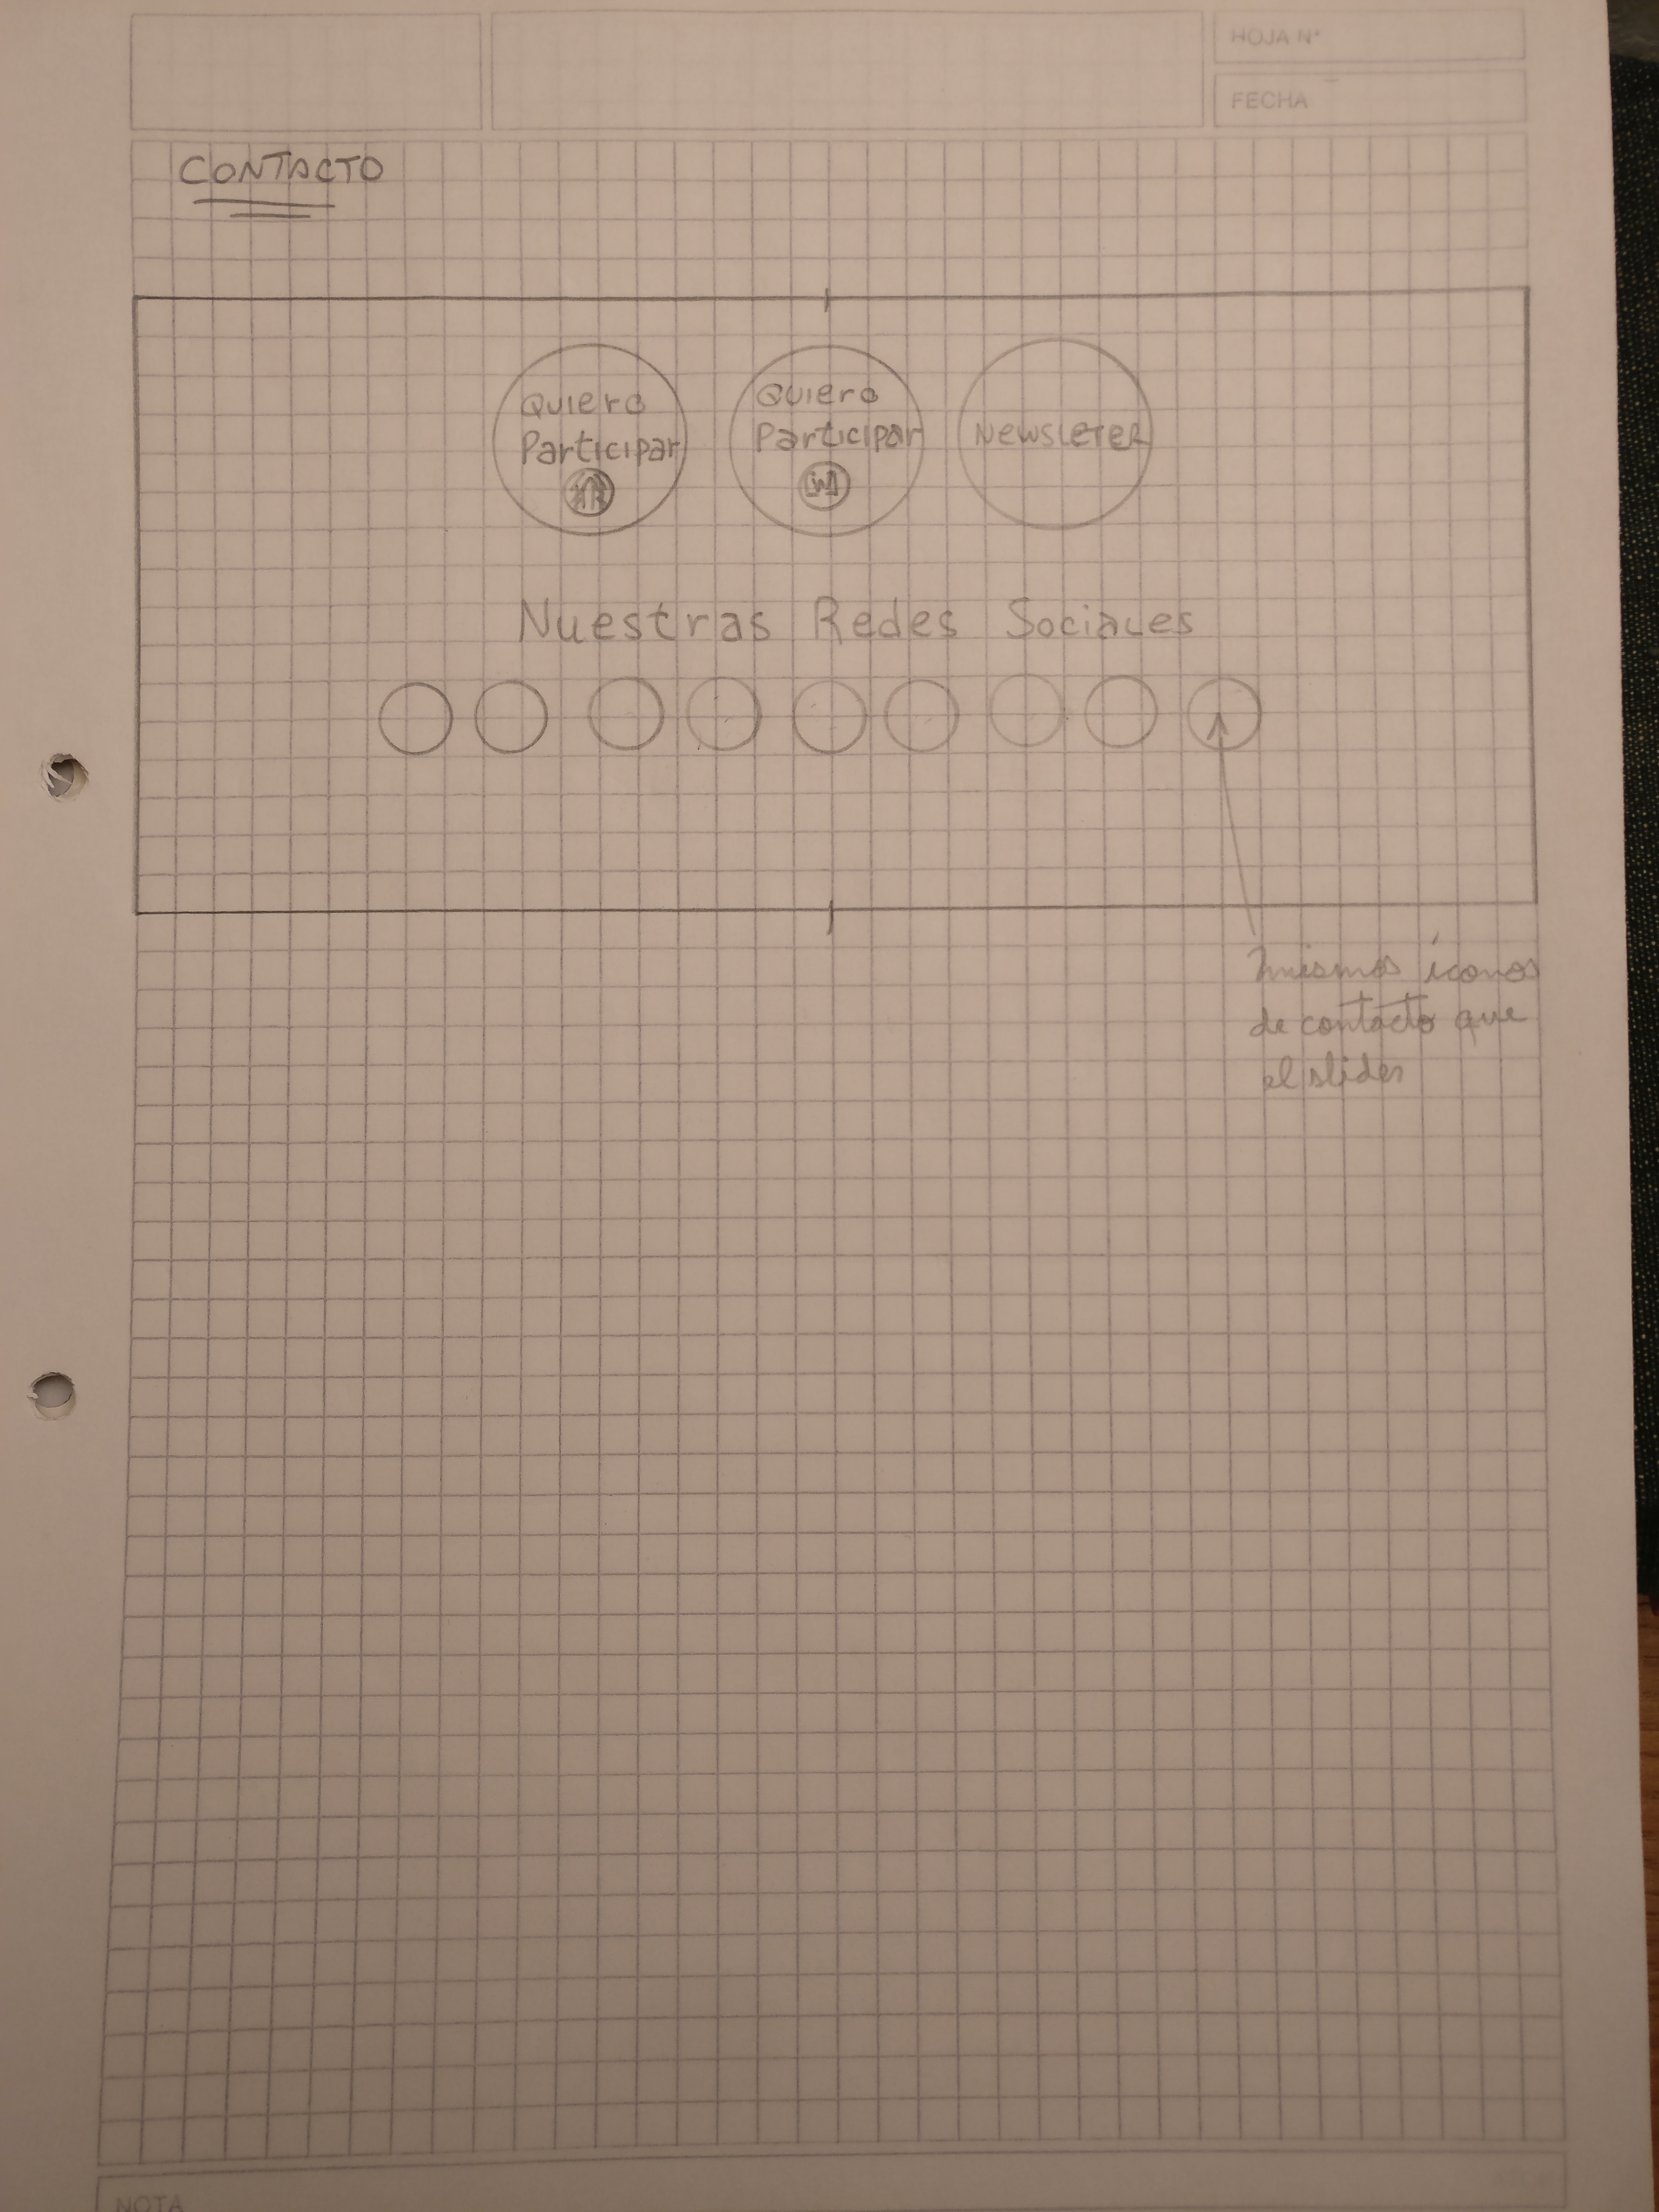 HOJA N°
FECHA
CONTACTO
Quiero
Participar
Quiero
Participar
NEWSLETER
Nuestras Redes Sociales
mismos íconos
de contacto que
el slider
NOTA